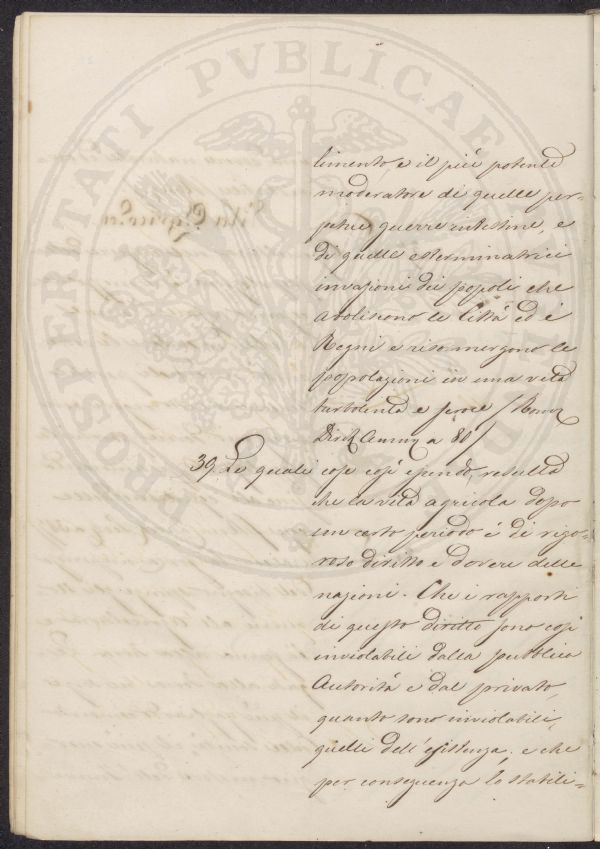 PROSPERITATI PVBLICAE
limento, e il piú potente
moderatore di quelle per=
petue guerre intestine, e
di quelle esterminatrici
invasioni dei popoli che
aboliscono le Città ed i
Regni e risommergono le
popolazioni in una vita
turbolenta e feroce /
a 80/
39. Le quali cose cosí essendo, resulta
che la vita agricola dopo
un certo periodo é di rigo=
roso diritto e dovere delle
nazioni. Che i rapporti
di questo diritto sono cosí
inviolabili dalla pubblica
Autoritá e dal privato,
quanto sono inviolabili,
quelli dell'esistenza; e che
per conseguenza lo stabili=